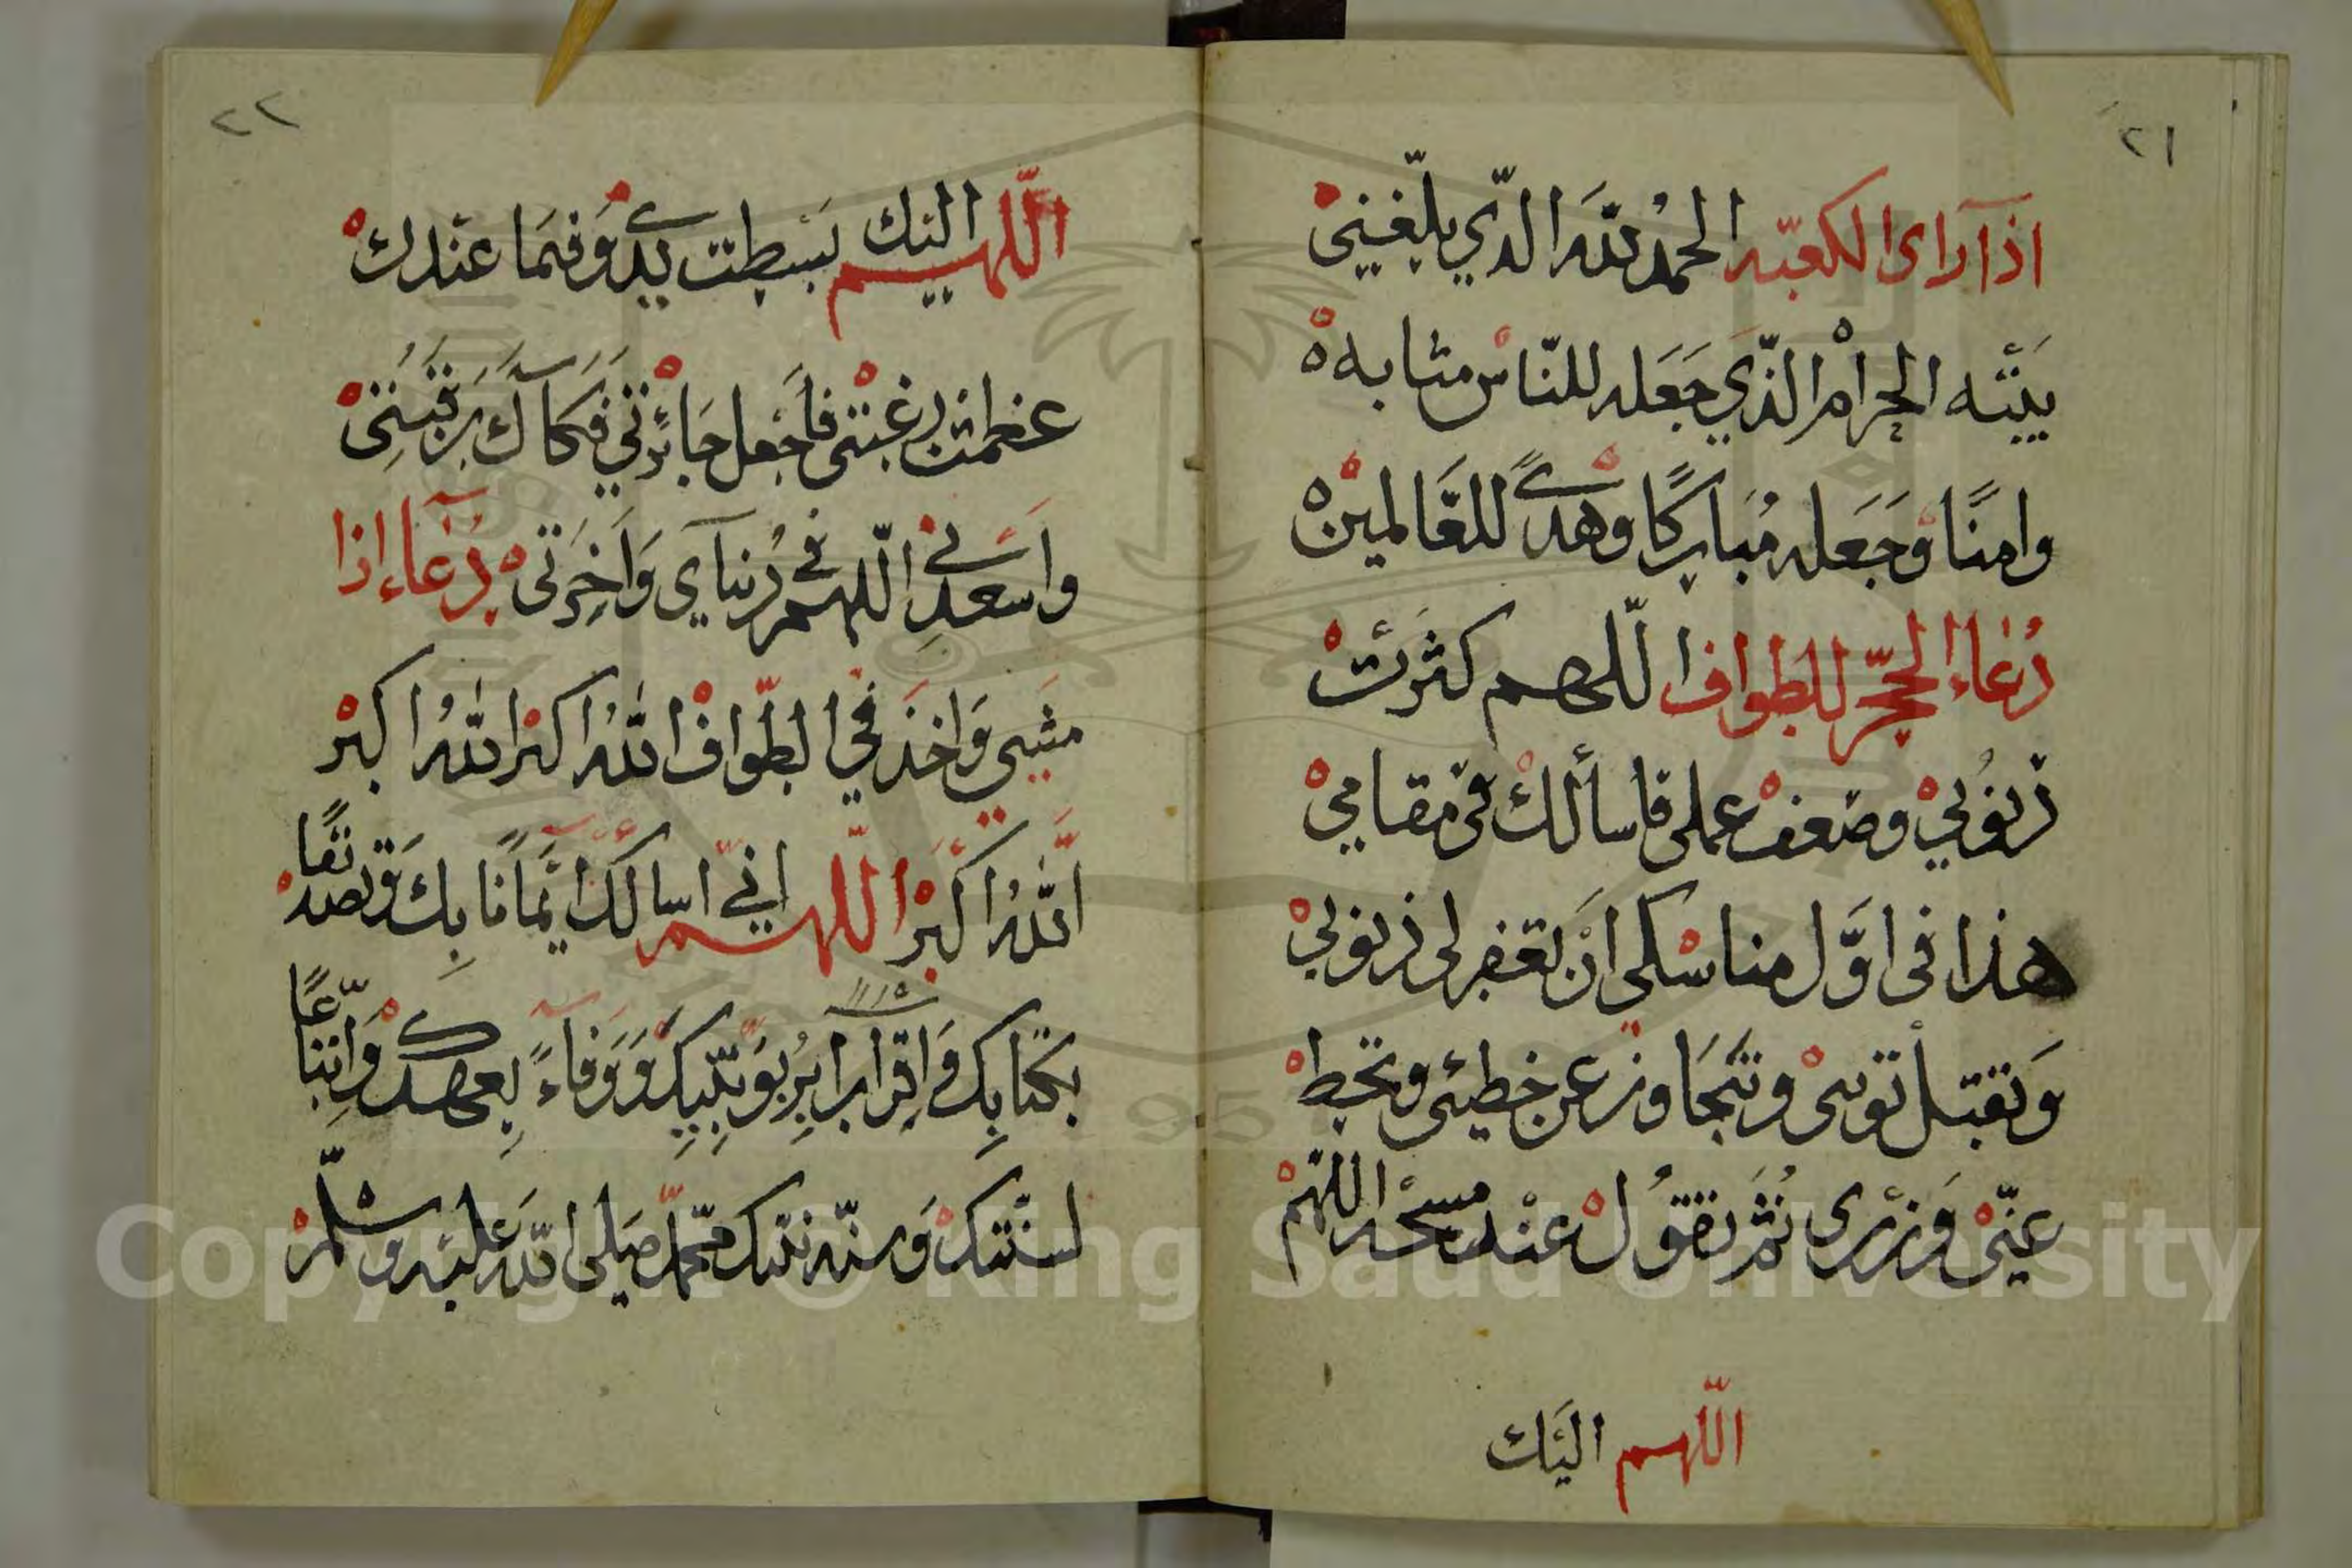 ٢١
اذا راى الكعبه الحمد لله الذي بلغني
بيته الحرام الذي جعله للناس مثابه
وامنا وجعله مباركا وهدى للعالمين
دعاء الحجر للطواف اللهم كثرت
ذنوبي وضعف عملي فاسألك في مقامي
هذا في اول مناسكي ان تغفر لي ذنوبي
وتقبل توبتي وتتجاوز عن خطيئتي وتحط
عني وزري ثم تقول عند مسحه اللهم
اللهم اليك
٢٢
اللهم اليك بسطت يدي وفيما عندك
عظمت رغبتي فاجعل جائزتي فكاك رقبتي
واسعدني اللهم في دنياي واخرتي دعاء اذا
مشي واخذ في الطواف الله اكبر الله اكبر
الله اكبر اللهم اني اسالك ايمانا بك وتصديقا
بكتابك واقرارا بربوبيتك ووفاء بعهدك واتباعا
لسنتك وسنة نبيك محمد صلى الله عليه وسلم
Copyright © King Saud University